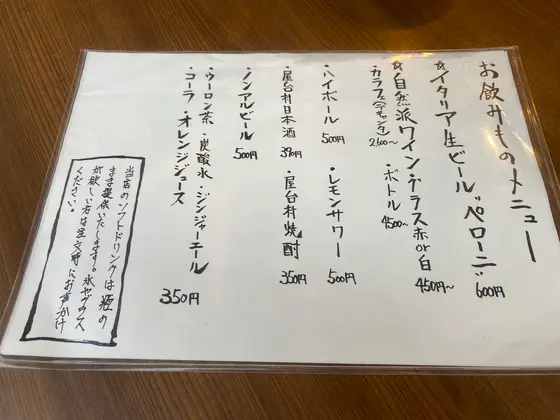 お飲みものメニュー
☆イタリア生ビール"ペローニ" 600円
☆自然派ワイン・グラス赤or白 450円~
・カラフェ(デキャンタ) 2,600~ ・ボトル 4500~
・ハイボール 500円 ・レモンサワー 500円
・屋台村日本酒 390円 ・屋台村焼酎 350円
・ノンアルビール 500円
・ウーロン茶・炭酸水・ジンジャーエール
・コーラ・オレンジジュース 350円
当店のソフトドリンクは瓶の
まま提供いたします。氷やグラス
が欲しい方は注文時にお声がけ
ください。